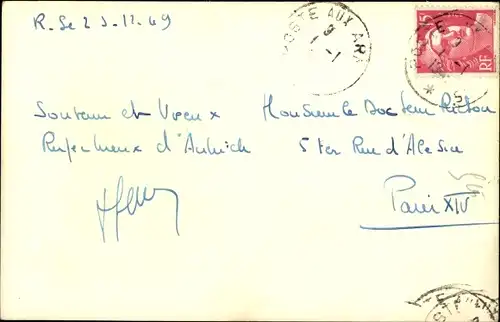 R. Le 23-12-49
POSTE AUX AR
Souvenir et Voeux
Respectueux d'Autriche
Monsieur le Docteur
5 ter Rue d'Alesia
Paris XIV
RF